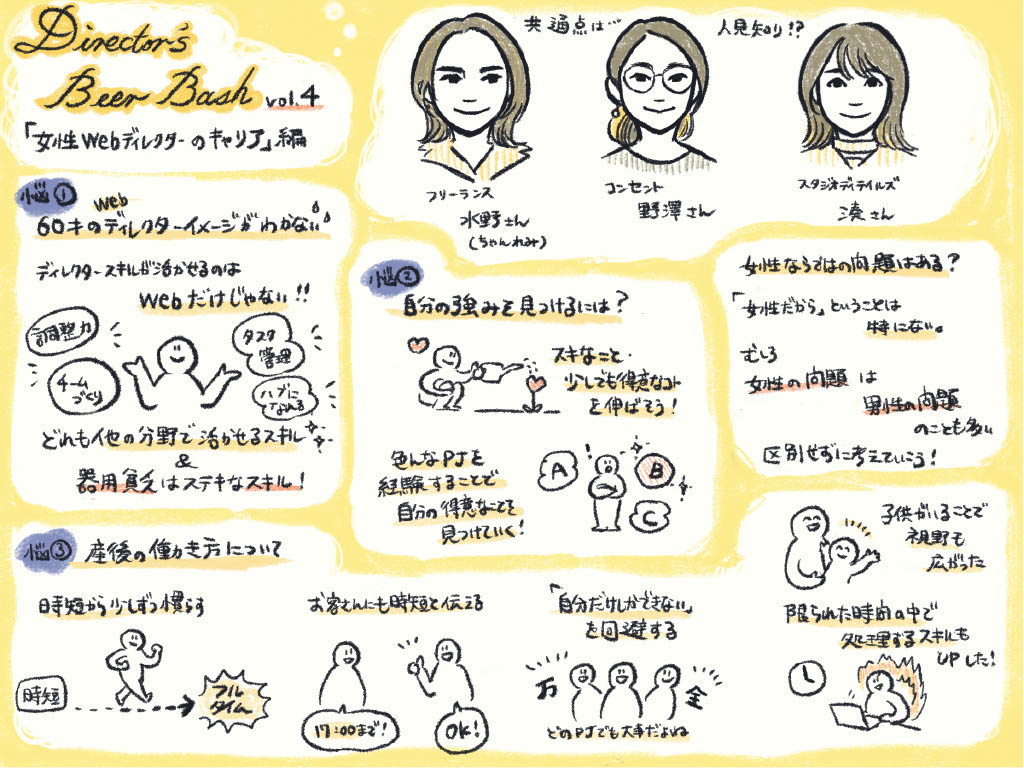 Director's
Beer Bash vol.4
「女性Webディレクターのキャリア」編
共通点は…
人見知り!?
フリーランス
水野さん
(ちゃんれみ)
コンセント
野澤さん
スタジオディテイルズ
湊さん
悩①
60才のWebディレクターイメージがわかない
ディレクタースキルが活かせるのは
Webだけじゃない!!
調整力
タスク
管理
チーム
づくり
ハブに
なれる
どれも他の分野で活かせるスキル
&
器用貧乏はステキなスキル!
悩②
自分の強みを見つけるには?
スキなこと・
少しでも得意なコト
を伸ばそう!
色んなPJを
経験することで
自分の得意なことを
見つけていく!
!
A
B
C
女性ならではの問題はある?
「女性だから」ということは
特にない。
むしろ
女性の問題は
男性の問題
のことも多い
区別せずに考えていこう!
悩③
産後の働き方について
時短から少しずつ慣らす
時短
フル
タイム
お客さんにも時短と伝える
17:00まで!
OK!
「自分だけしかできない」
を回避する
万
全
どのPJでも大事だよね
子供がいることで
視野も
広がった
限られた時間の中で
処理するスキルも
UPした!